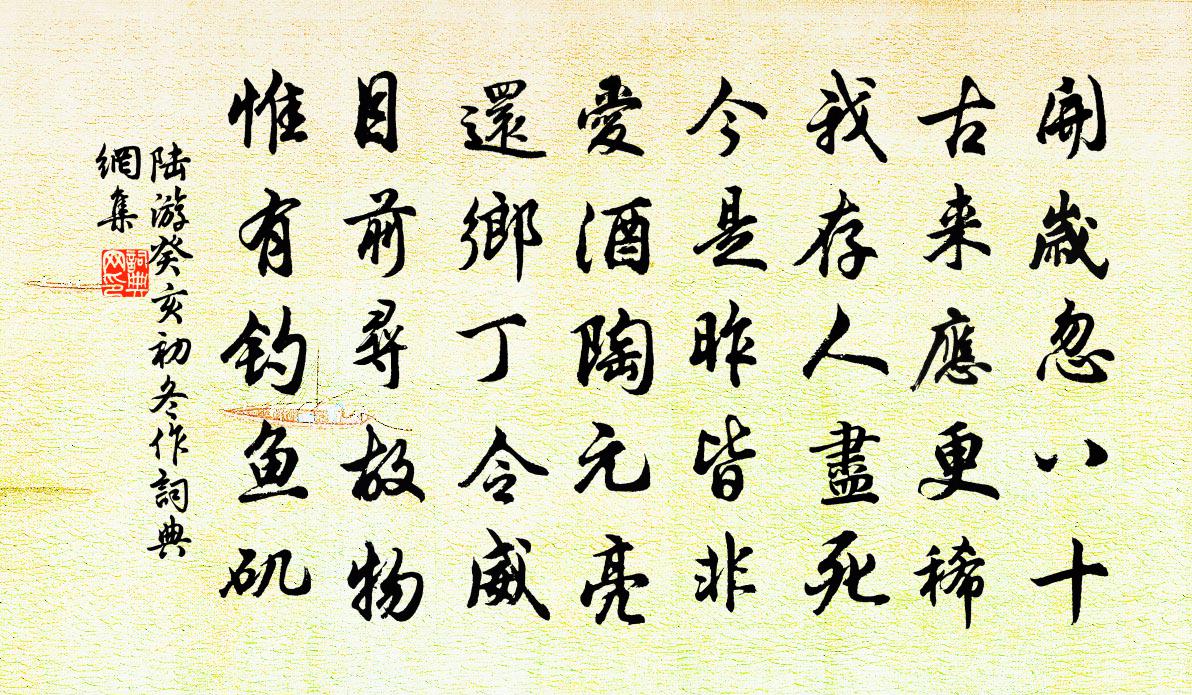 開歲忽八十
古来應更稀
我存人盡死
今是昨皆非
愛酒陶元亮
還鄉丁令威
目前尋故物
惟有钓鱼矶
陆游癸亥初冬作詞典
網集
詞典
网印